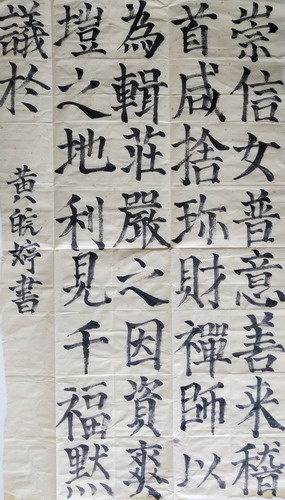 崇信女普意善来稽
首咸捨珎財禪師以
為輯莊嚴之因資爽
塏之地利見千福默
議於
黄皖婷書